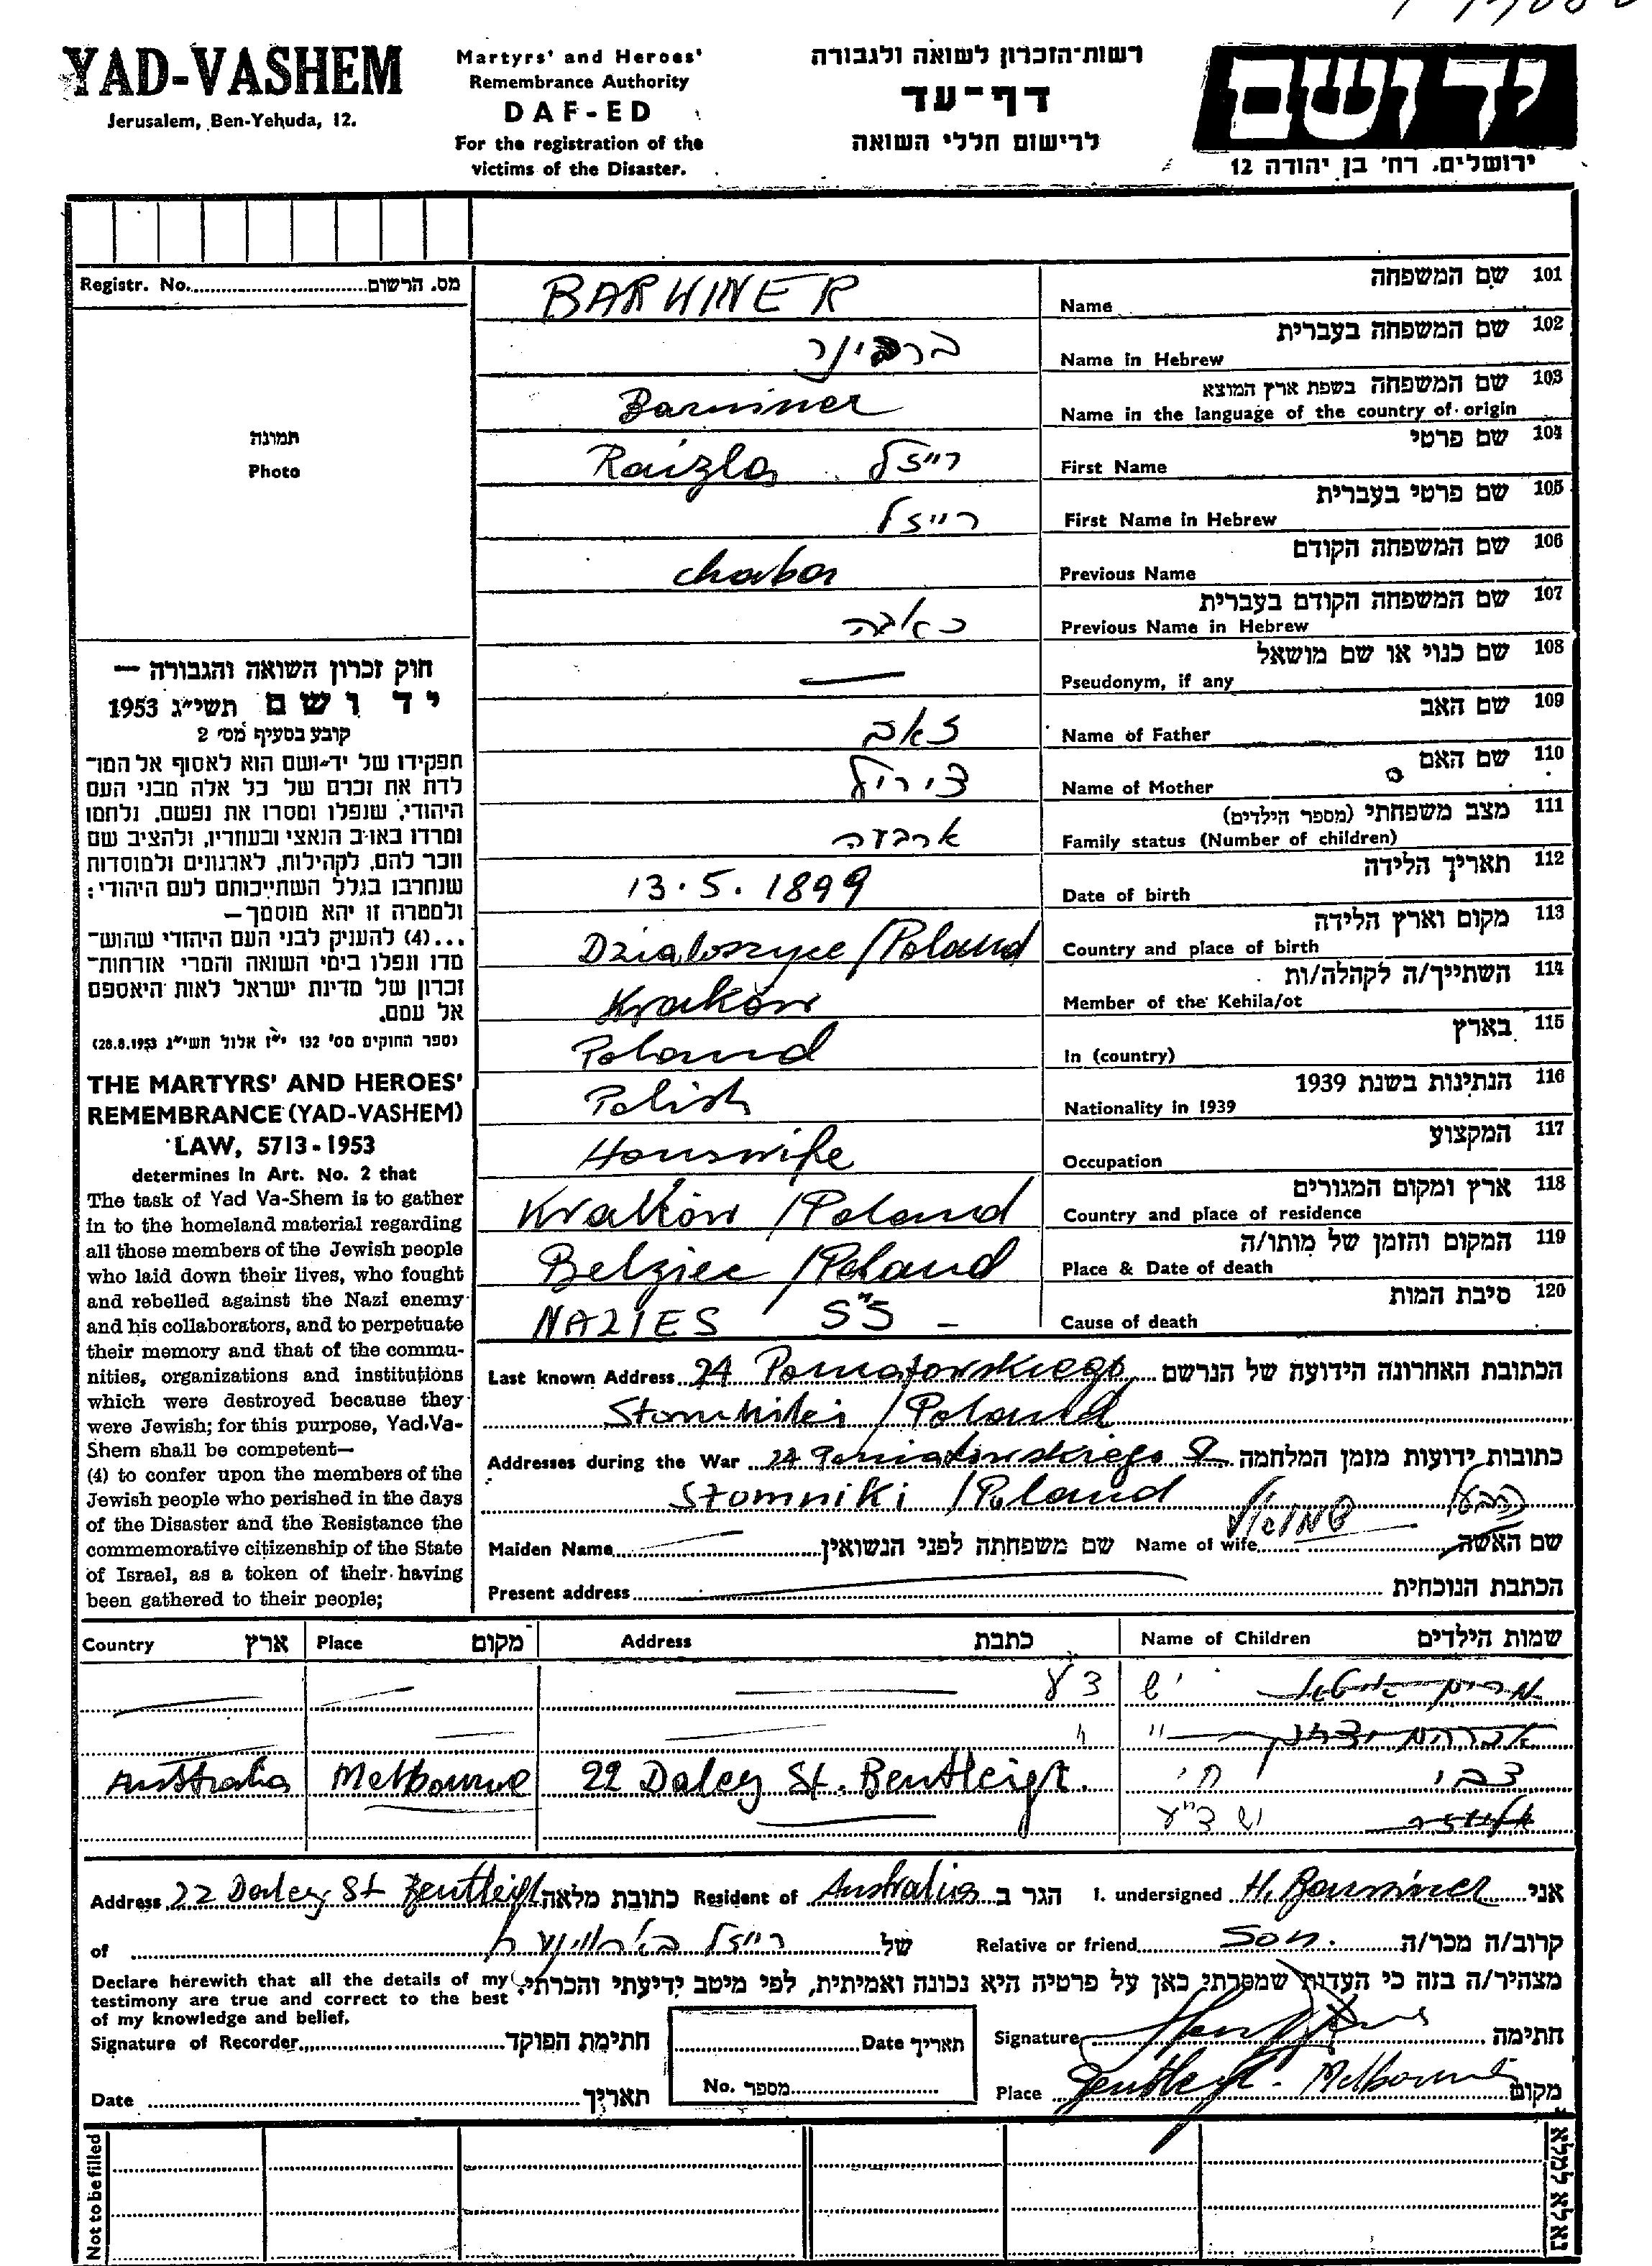 YAD-VASHEM
Jerusalem, Ben-Yehuda, 12.
Martyrs' and Heroes'
Remembrance Authority
DAF-ED
For the registration of the
victims of the Disaster.
רשות-הזכרון לשואה ולגבורה
דף-עד
לרישום חללי השואה
יד ושם
ירושלים, רח' בן יהודה 12
Registr. No. מס. הרשום
תמונה
Photo
חוק זכרון השואה והגבורה —
יד ושם תשי"ג 1953
קובע בסעיף מס' 2
תפקידו של יד-ושם הוא לאסוף אל המו-
לדת את זכרם של כל אלה מבני העם
היהודי, שנפלו ומסרו את נפשם, נלחמו
ומרדו באויב הנאצי ובעוזריו, ולהציב שם
וזכר להם, לקהילות, לארגונים ולמוסדות
שנחרבו בגלל השתייכותם לעם היהודי;
ולמטרה זו יהא מוסמך—
...(4) להעניק לבני העם היהודי שהוש-
מדו ונפלו בימי השואה והמרי אזרחות-
זכרון של מדינת ישראל לאות היאספם
אל עמם.
(ספר החוקים מס' 132 י"ז אלול תשי"ג 28.8.1953)
THE MARTYRS' AND HEROES'
REMEMBRANCE (YAD-VASHEM)
LAW, 5713-1953
determines in Art. No. 2 that
The task of Yad Va-Shem is to gather
in to the homeland material regarding
all those members of the Jewish people
who laid down their lives, who fought
and rebelled against the Nazi enemy
and his collaborators, and to perpetuate
their memory and that of the commu-
nities, organizations and institutions
which were destroyed because they
were Jewish; for this purpose, Yad-Va-
Shem shall be competent—
(4) to confer upon the members of the
Jewish people who perished in the days
of the Disaster and the Resistance the
commemorative citizenship of the State
of Israel, as a token of their having
been gathered to their people;
101 שם המשפחה
Name BARWINER
102 שם המשפחה בעברית
Name in Hebrew
103 שם המשפחה בשפת ארץ המוצא
Name in the language of the country of origin Barwiner
104 שם פרטי
First Name Raizla רייזל
105 שם פרטי בעברית
First Name in Hebrew רייזל
106 שם המשפחה הקודם
Previous Name Chaba
107 שם המשפחה הקודם בעברית
Previous Name in Hebrew כאבה
108 שם כנוי או שם מושאל
Pseudonym, if any —
109 שם האב
Name of Father זאב
110 שם האם
Name of Mother צירל
111 מצב משפחתי (מספר הילדים)
Family status (Number of children) ארבעה
112 תאריך הלידה
Date of birth 13.5.1899
113 מקום וארץ הלידה
Country and place of birth Dzialoszyce / Poland
114 השתייך/ה לקהלה/ות
Member of the Kehila/ot Kraków
115 בארץ
In (country) Poland
116 הנתינות בשנת 1939
Nationality in 1939 Polish
117 המקצוע
Occupation Houswife
118 ארץ ומקום המגורים
Country and place of residence Kraków / Poland
119 המקום והזמן של מותו/ה
Place & Date of death Belziec / Poland
120 סיבת המות
Cause of death NAZIES SS –
Last known Address 24 Poniatowskiego הכתובת האחרונה הידועה של הנרשם
Słomniki / Poland
Addresses during the War 24 Poniatowskiego 8 כתובות ידועות מזמן המלחמה
Słomniki / Poland
Maiden Name שם משפחתה לפני הנשואין Name of wife שמואל הבעל שם האשה
Present address הכתבת הנוכחית
Country ארץ Place מקום Address כתבת Name of Children שמות הילדים
מרים
אברהם
Australia Melbourne 22 Daley St. Bentleigh. צבי
Address 22 Daley St Bentleigh כתובת מלאה Resident of Australia הגר ב I, undersigned H. Barwiner אני
of רייזל של Relative or friend Son. קרוב/ה מכר/ה
Declare herewith that all the details of my
testimony are true and correct to the best
of my knowledge and belief.
מצהיר/ה בזה כי העדות שמסרתי כאן על פרטיה היא נכונה ואמיתית, לפי מיטב ידיעתי והכרתי.
Signature of Recorder חתימת הפוקד
Date תאריך
Date תאריך
No. מספר
Signature חתימה
Place Bentleigh. Melbourne מקום
Not to be filled
נא לא למלא